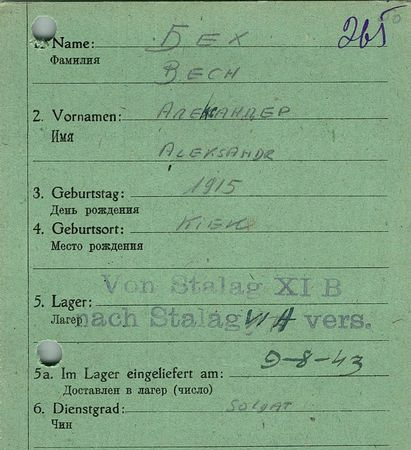 265
1. Name: Бех
Фамилия
Bech
2. Vornamen: Александер
Имя
Aleksandr
3. Geburtstag: 1915
День рождения
4. Geburtsort: Kiew
Место рождения
Von Stalag XI B
5. Lager:
Лагер nach Stalag VI A vers.
5a. Im Lager eingeliefert am: 9-8-43
Доставлен в лагер (число)
6. Dienstgrad: Soldat
Чин